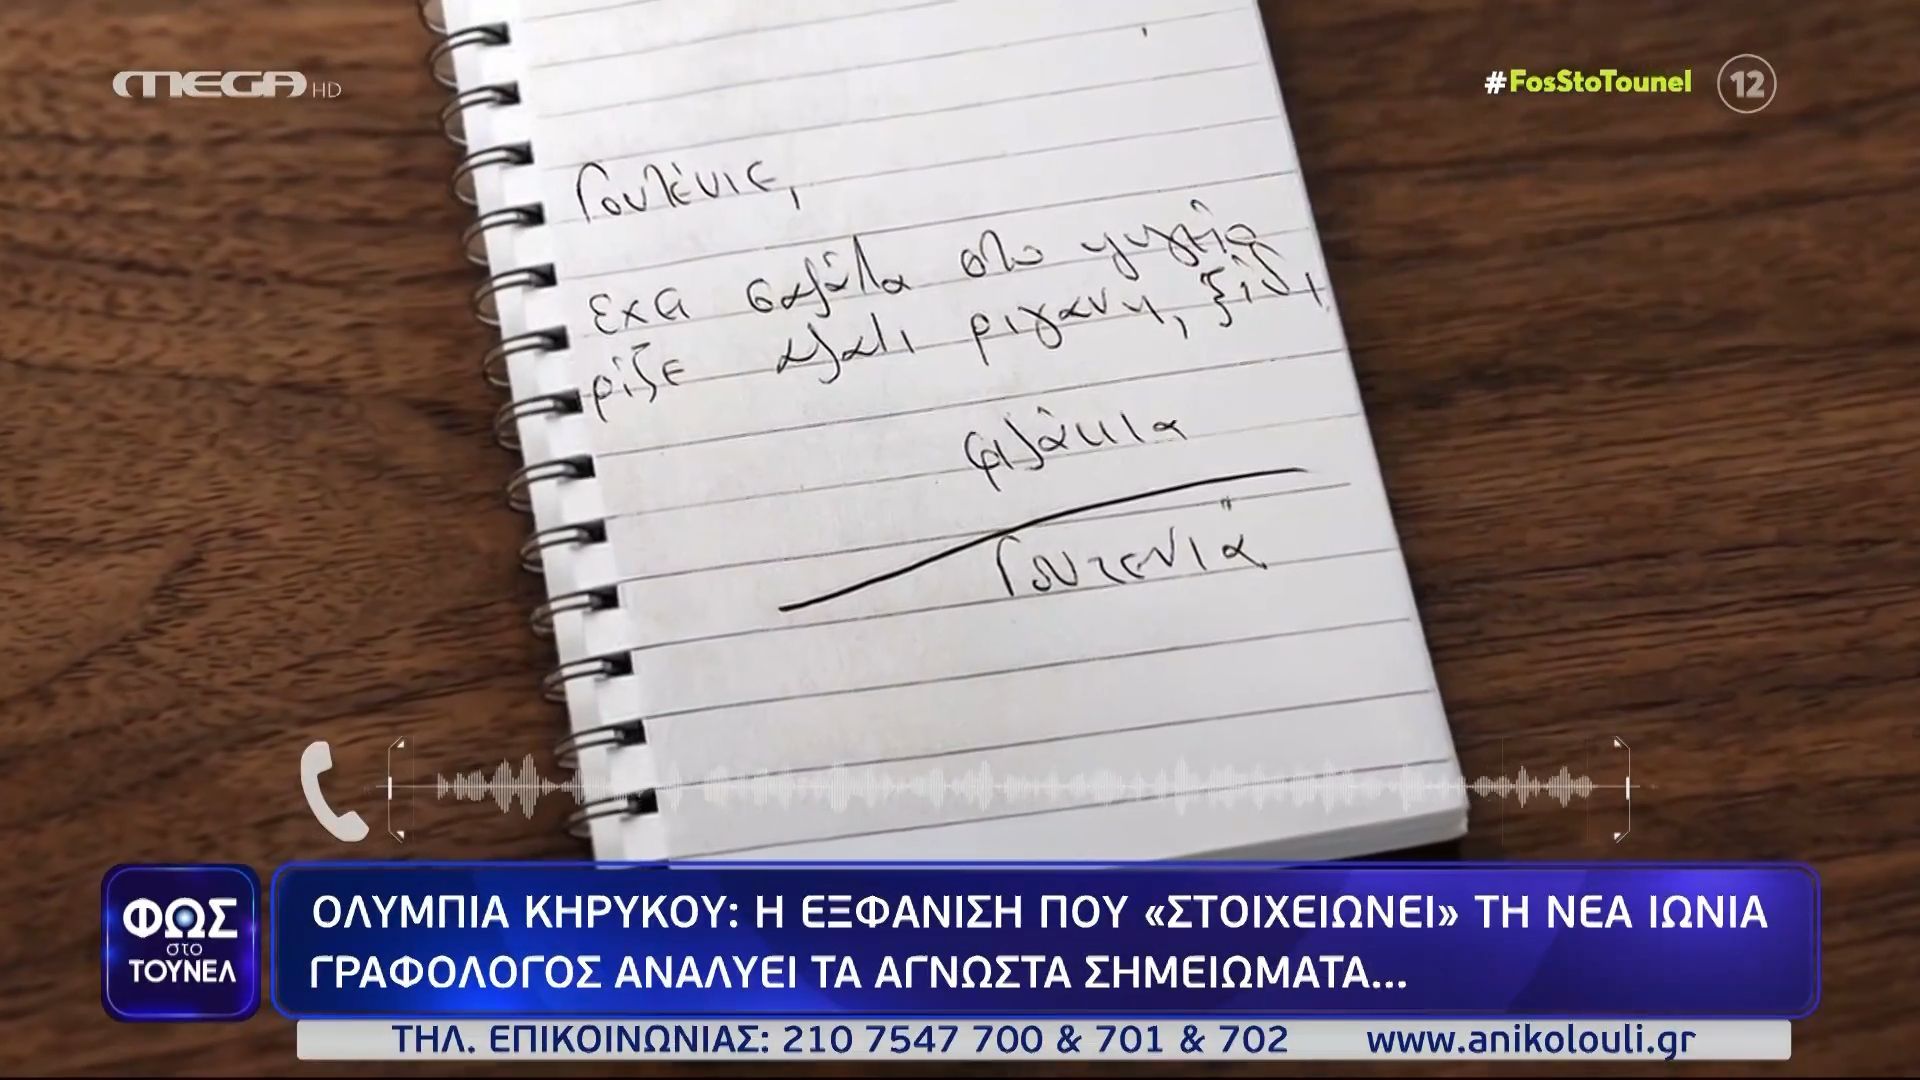 MEGA HD
#FosStoTounel 12
Γουτένιε,
εχει σαλάτα στο ψυγείο
ρίξε αλατι ριγανη, ξίδι
φιλάκια
Γουτενιά
ΦΩΣ
στο
ΤΟΥΝΕΛ
ΟΛΥΜΠΙΑ ΚΗΡΥΚΟΥ: Η ΕΞΦΑΝΙΣΗ ΠΟΥ «ΣΤΟΙΧΕΙΩΝΕΙ» ΤΗ ΝΕΑ ΙΩΝΙΑ
ΓΡΑΦΟΛΟΓΟΣ ΑΝΑΛΥΕΙ ΤΑ ΑΓΝΩΣΤΑ ΣΗΜΕΙΩΜΑΤΑ...
ΤΗΛ. ΕΠΙΚΟΙΝΩΝΙΑΣ: 210 7547 700 & 701 & 702 www.anikolouli.gr